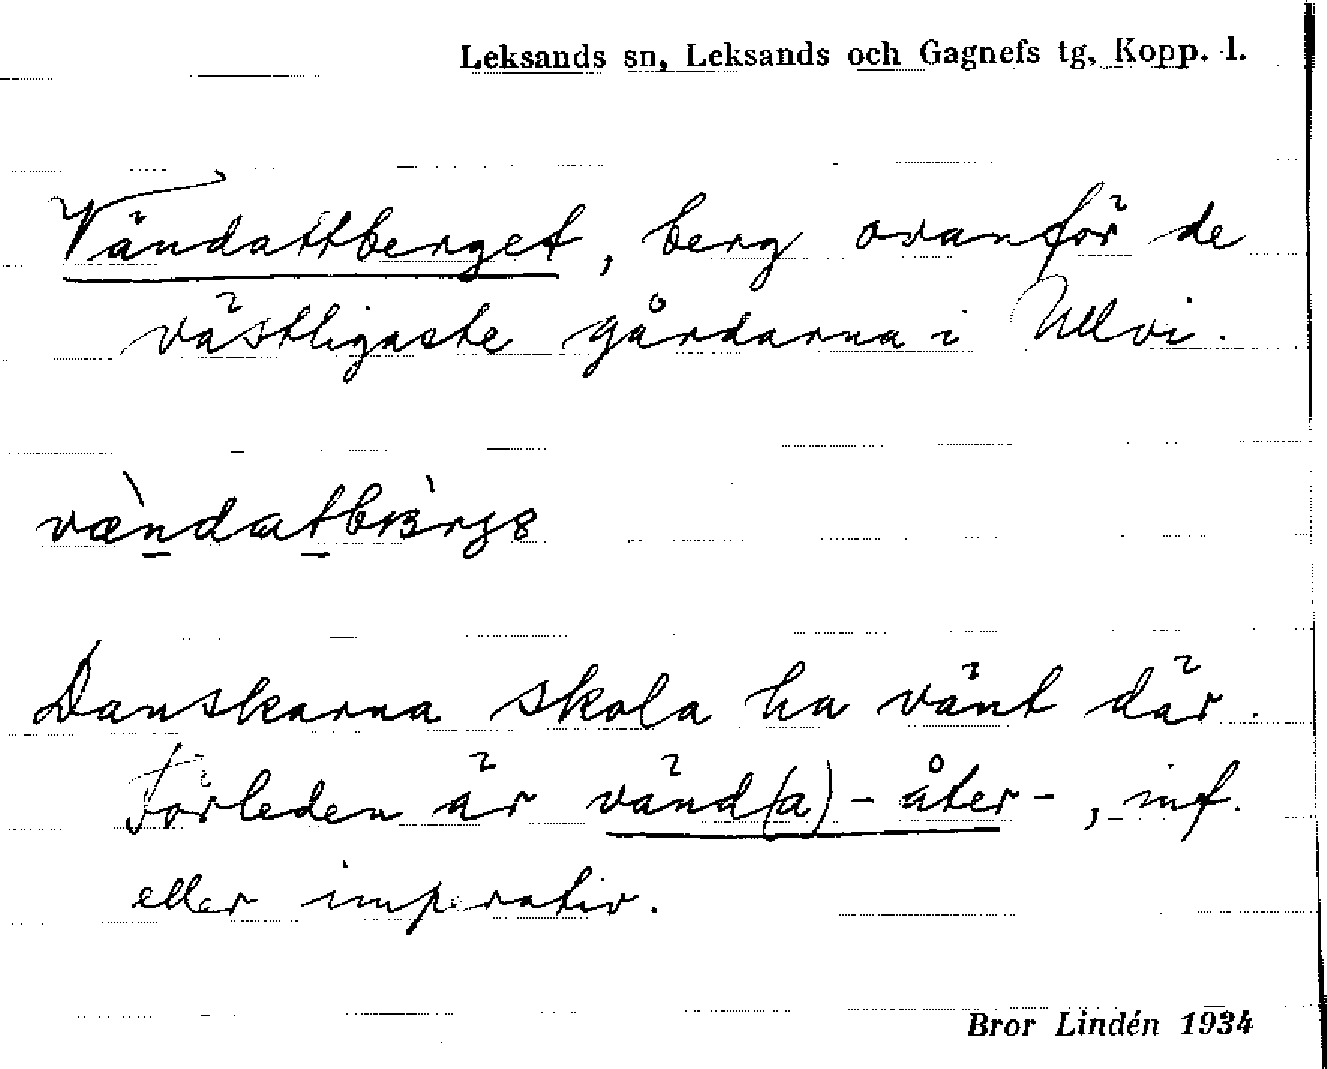 Leksands sn, Leksands och Gagnefs tg, Kopp. l.
Vändattberget, berg ovanför de
västligaste gårdarna i Ullvi.
Danskarna skola ha vänt där.
Förleden är vänd(a)-åter-, inf.
eller imperativ.
Bror Lindén 1934